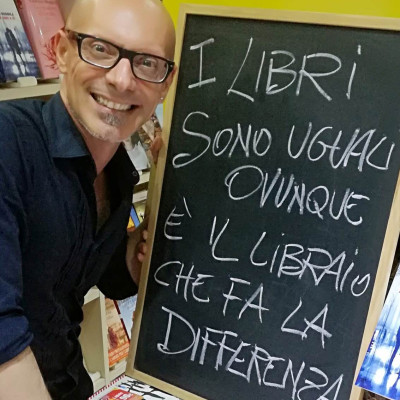 I LIBRI
SONO UGUALI
OVUNQUE
È IL LIBRAIO
CHE FA LA
DIFFERENZA